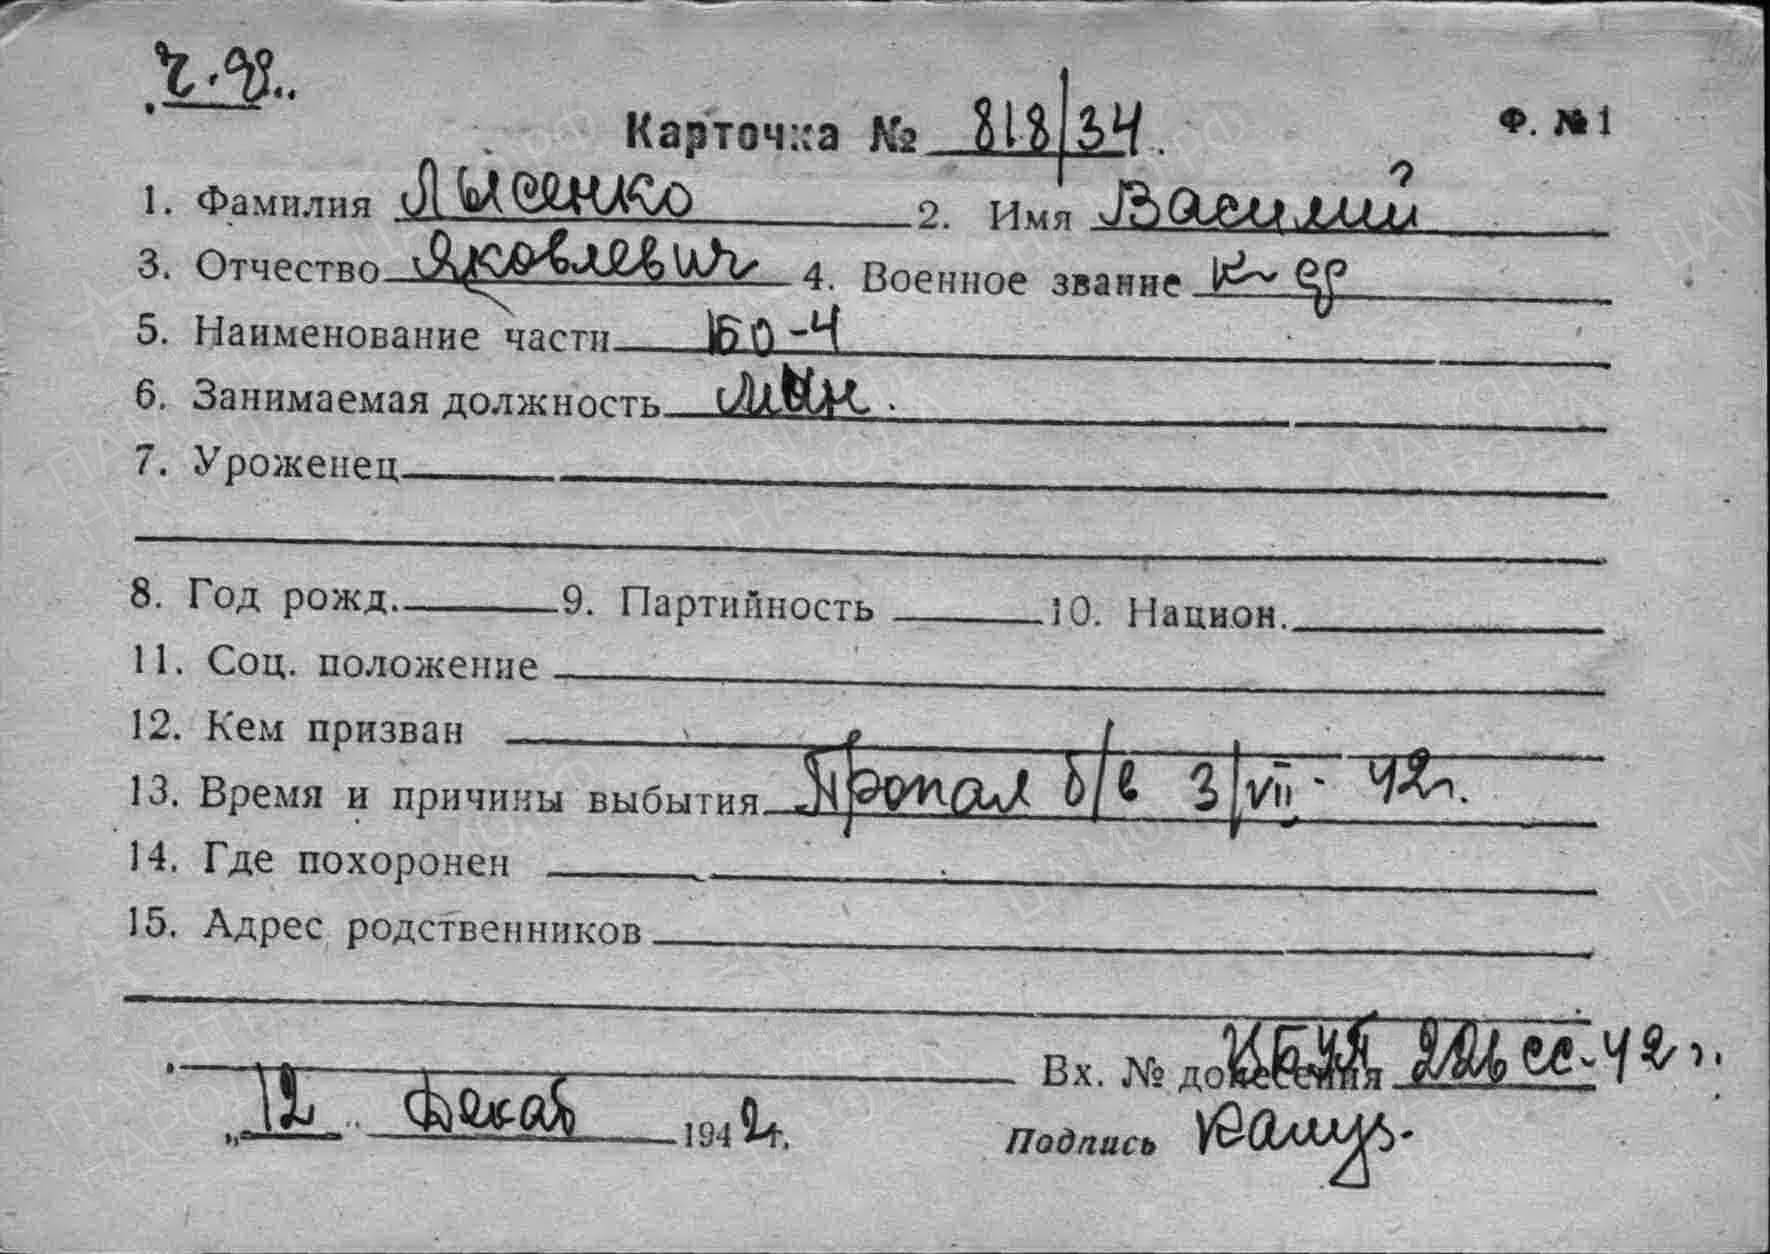 ч.ф.
Карточка № 818/34. Ф. № 1
1. Фамилия Лысенко 2. Имя Василий
3. Отчество Яковлевич 4. Военное звание к-ец
5. Наименование части БО-4
6. Занимаемая должность мин.
7. Уроженец
8. Год рожд. 9. Партийность 10. Национ.
11. Соц. положение
12. Кем призван
13. Время и причины выбытия Пропал б/в 3/VII-42г.
14. Где похоронен
15. Адрес родственников
Вх. № донесения 226 сс-42г.
„12" Декаб 1942г. Подпись